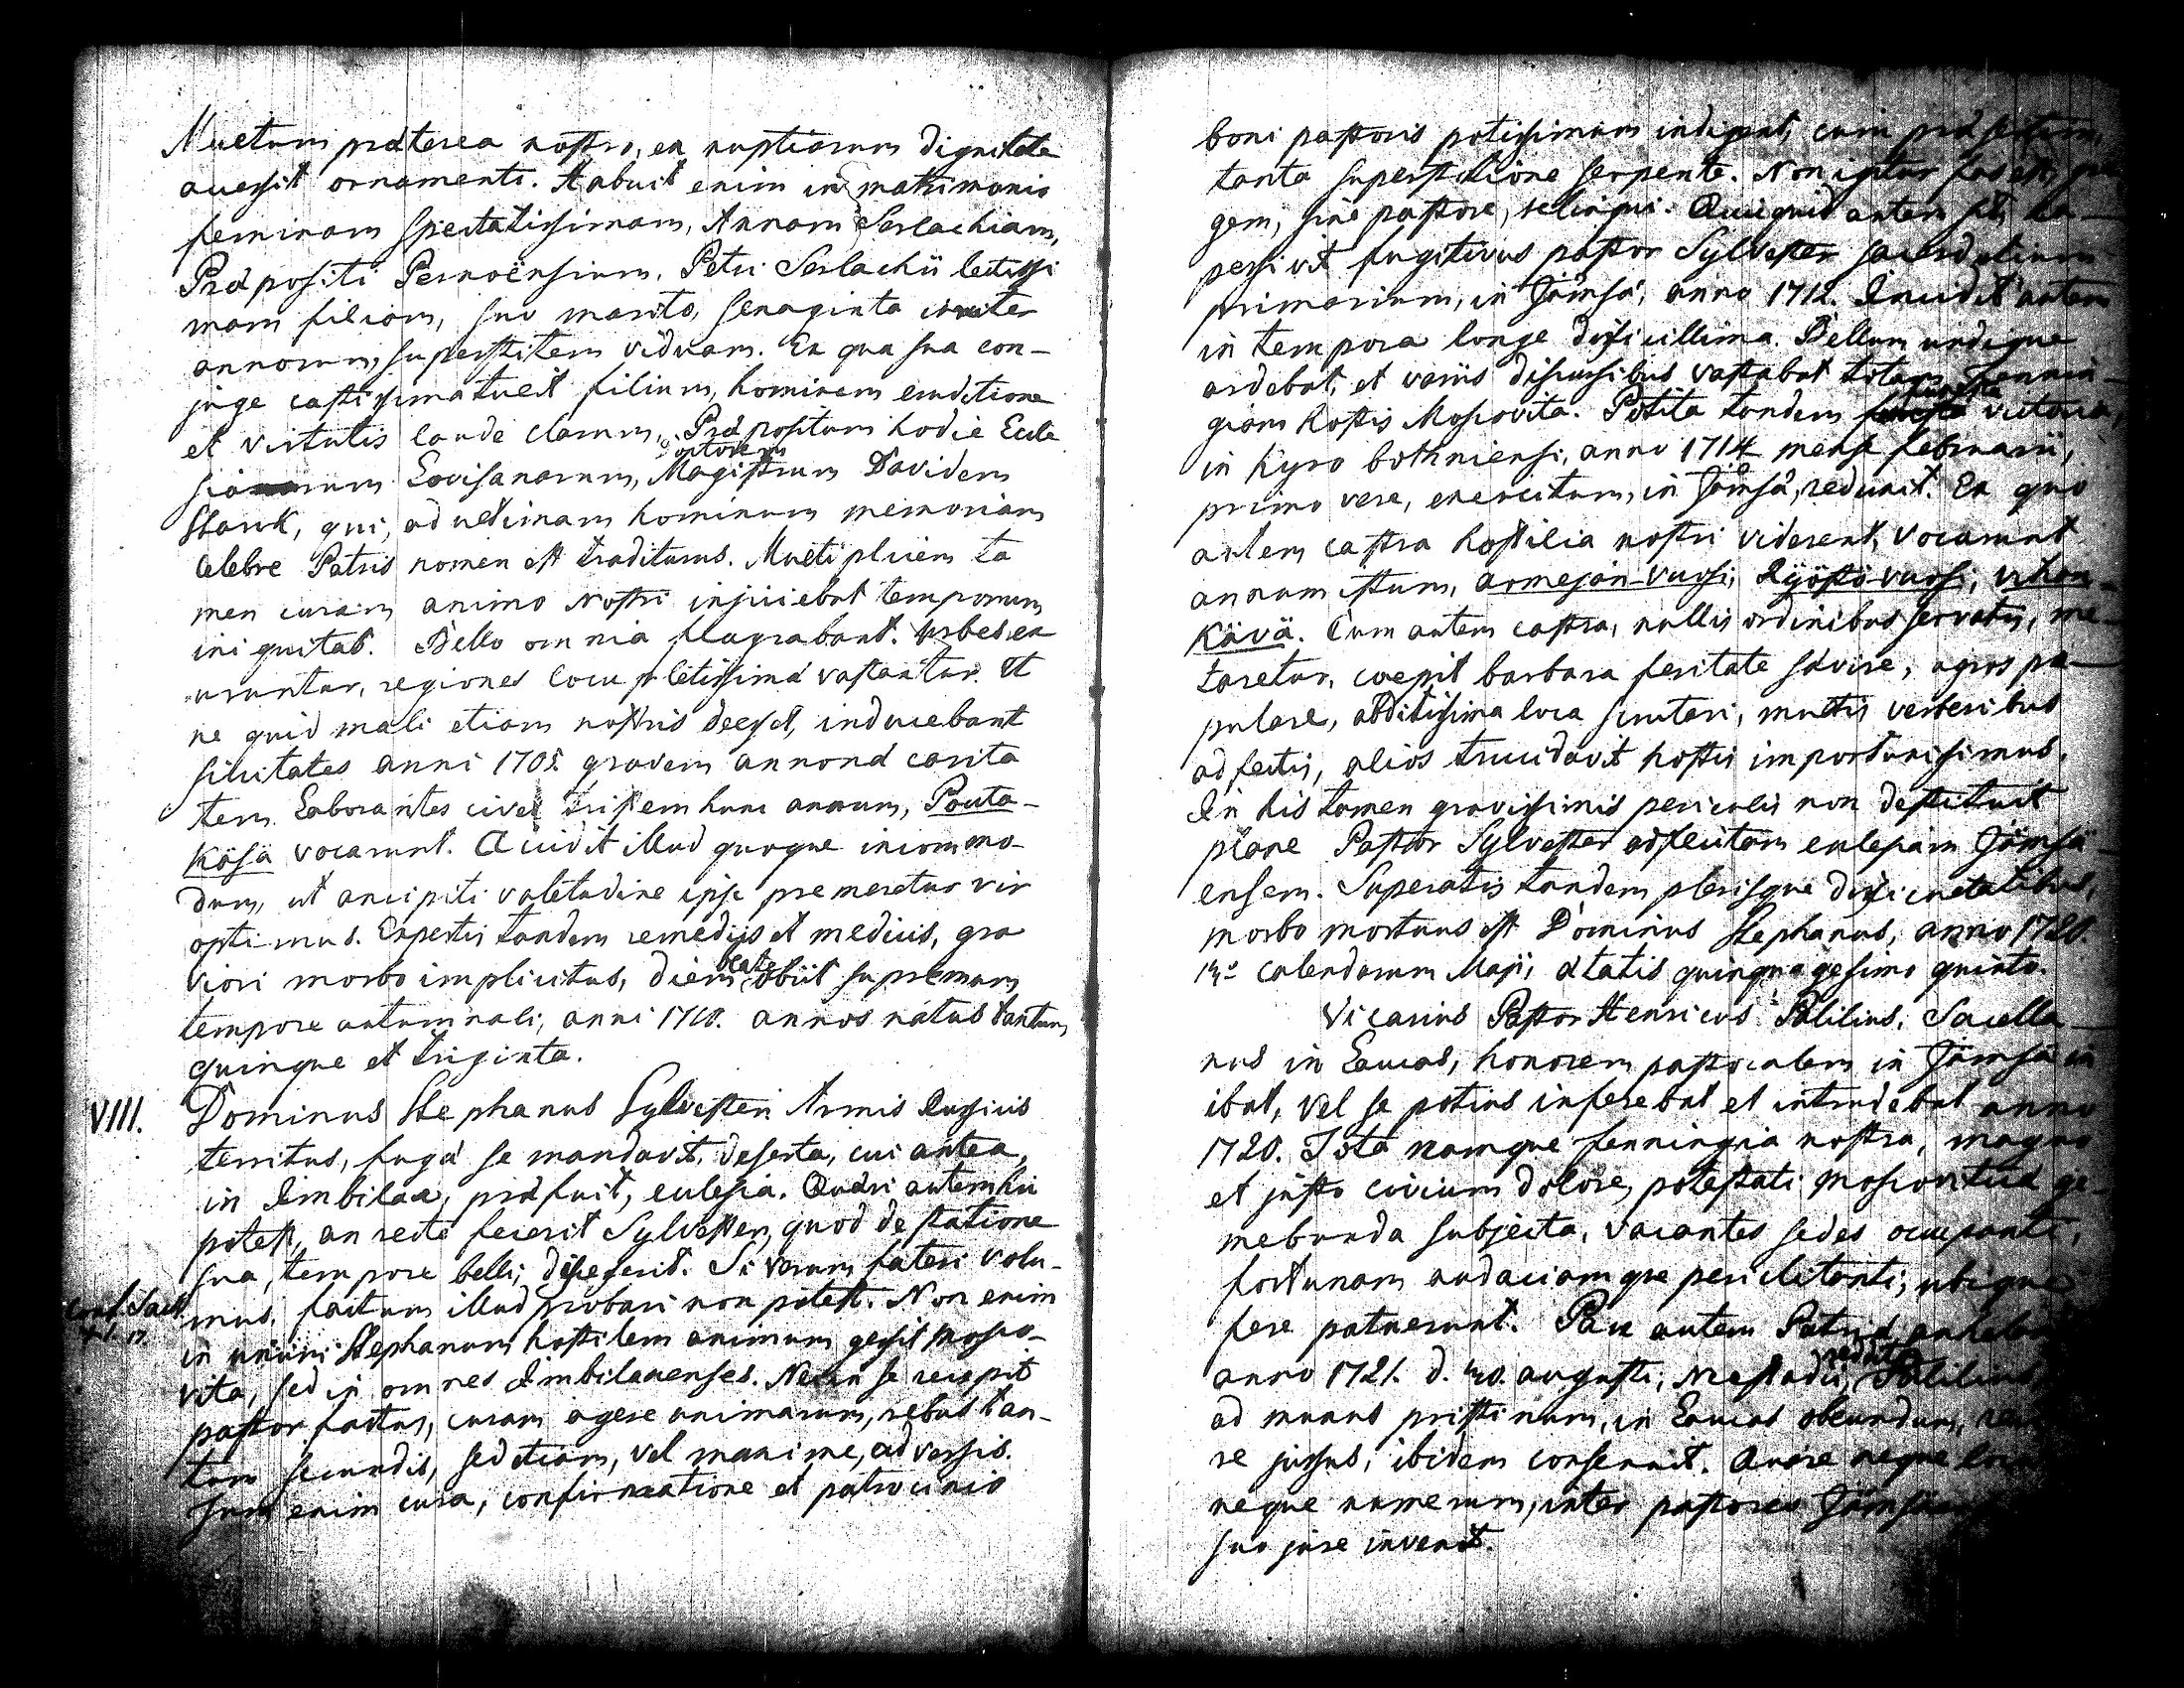 Multum præterea nostro, ex nuptiarum dignitate
accessit ornamenti. Habuit enim in matrimonio
feminam spectatissimam, Annam Serlachiam,
Præpositi Pernoënsium, Petri Serlachii lectissi
mam filiam, suo marito, sexaginta
annorum, superstitem viduam. Ex qua sua con-
juge castissima tulit filium, hominem eruditione
et virtutis laude clarum, Præpositum hodie Eccle
siarum Lovisanarum, Magistrum Davidem
Starck, qui, ad ultimam hominum memoriam
celebre Patris nomen est traditurus. Multiplicem ta
men curam animo Nostri injiciebat temporum
iniquitas. Bello omnia flagrabant. Urbes ex
uruntur, regiones locupletissimæ vastantur. Et
ne quid mali etiam nostris deesset, inducebant
siccitates anni 1708 gravem annonæ carita
tem. Laborantes cives tristem hunc annum, Pouta-
Käsä vocarunt. Accidit illud quoque incommo-
dum, ut ancipiti valetudine ipse premeretur vir
optimus. Expertis tandem remediis et medicis, gra
viori morbo implicitus, diem beate obiit supremum
tempore autumnali, anni 1710. annos natus tantum
quinque et triginta.
VIII. Dominus Stephanus Sylvester. Armis Russicis
territus, fugæ se mandavit, deserta, cui antea,
in Imbilax, præfuit, eclesia. Quæri autem hic
potest, an recte fecerit Sylvester, quod de statione
sua, tempore belli, discesserit. Si verum fateri volu-
mus, factum illud probari non potest. Non enim
in unum Stephanum hostilem animum gessit Mosco-
vita, sed in omnes Imbilaxenses. se recepit
pastor factus, curam agere animarum, rebus tan-
tum secundis, sed etiam, vel maxime, adversis.
Tum enim cura, confirmatione et patrocinio
boni pastoris potissimum indigent, cum
tanta superstitione serpente. Non igitur fas est,
gem, sine pastore, relinqui. Quicquid autem sit,
pessivit fugitivus pastor Sylvester sacerdotium
primarium, in Jämsä, anno 1712. Incidit autem
in tempora longe dificillima. Bellum undique
ardebat, et variis discursibus vastabat totam Fennin-
giam hostis Moscovita. Potita tandem funesta victoria,
in Kyro bothniensi, anno 1714 mense februarii,
primo vere, exercitum, in Jämsä, reduxit. Ex quo
autem castra hostilia nostri viderent, vocarunt
annum istum, armejan-vuosi, Ryöstö-vuosi,
Kävä. Cum autem castra, nullis ordinibus servatis, me-
taretur, coepit barbara feritate sævire, agros po-
pulare, abditissima loca scrutari, multis verberibus
adfectis, alios trucidavit hostis importunissimus.
In his tamen gravissimis periculis non destituit
plane Pastor Sylvester adflictam eclesiam Jämsä-
ensem. Superatis tandem plerisque dificultatibus,
morbo mortuus est Dominus Stephanus, anno 1720.
calendarum Maji, ætatis quinquagesimo quinto.
Vicarius Pastor Henricus Palilius, Sacella-
nus in Laucas, honorem pastoralem in Jämsä in
ibat, vel se potius inferebat et intrudebat anno
1720. Tota namque Fenningia nostra, magno
et justo civium dolore, potestati Moscoviticæ ge-
mebunda subjecta, vacantes sedes occupanti,
fortunam audaciamque periclitanti, ubique
fere patuerunt. Pace autem Patriæ
anno 1721. d. 30. augusti, Neustadii reddita, Palilius,
ad munus pristinum, in Laucas obeundum,
re jussus, ibidem consenuit. Quare neque
neque numerum, inter pastores
suo jure invenit.